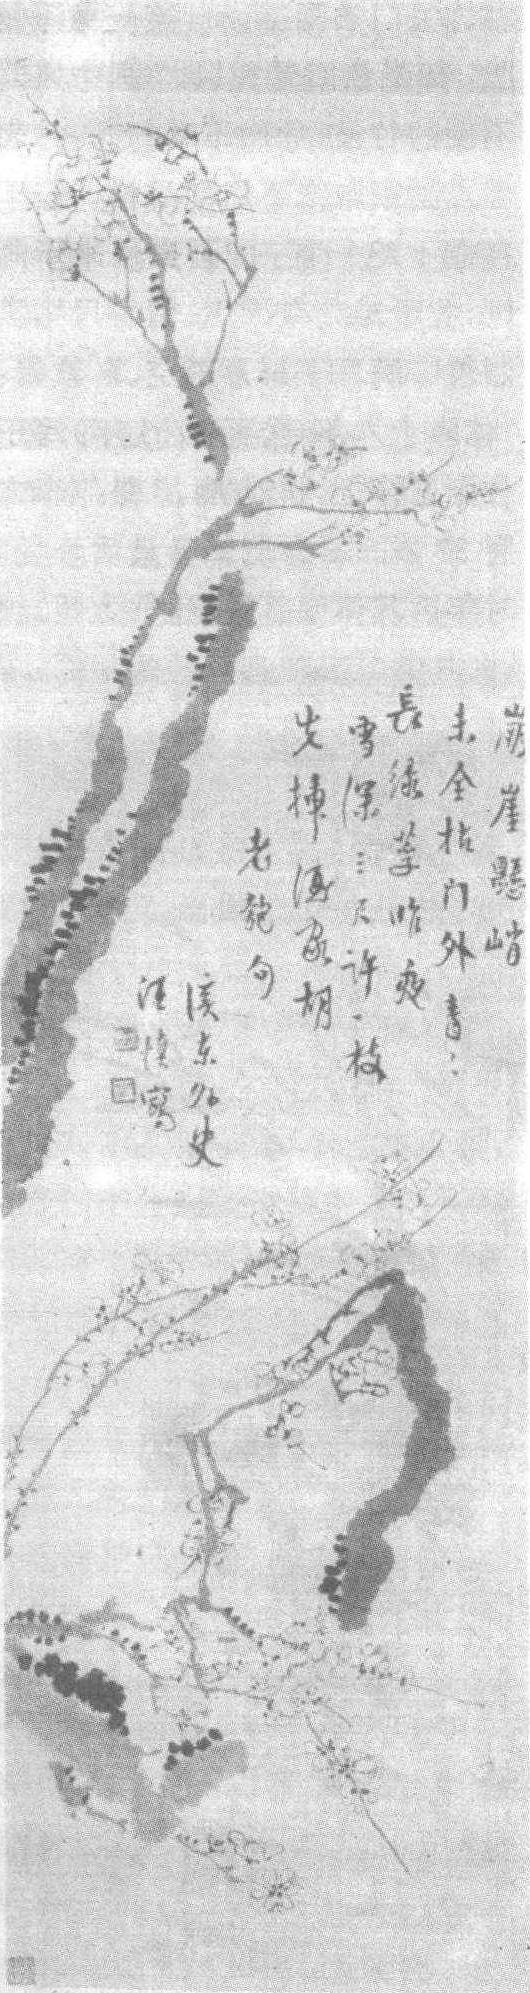 崩崖懸峭
未全枯门外青〻
長綠莩昨夜
雪深三尺許一枝
先插酒家胡
老匏句
溪东外史
汪慎寫